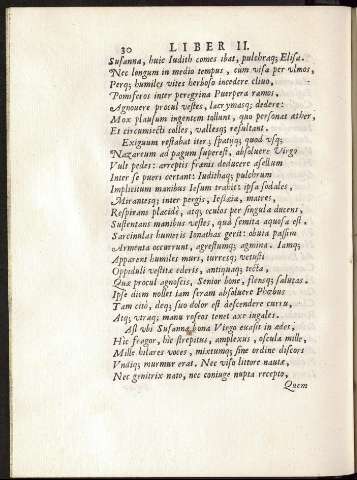 30 LIBER II.
Susanna, huic Iudith comes ibat, pulchraq; Elisa.
Nec longum in medio tempus, cum visa per vlmos,
Perq; humiles vites herboso incedere clivo,
Pomiferos inter peregrina Puerpera ramos,
Agnovere procul vestes, lacrymasq; dedere:
Mox plausum ingentem tollunt, quo personat æther,
Et circumiecti colles, vallesq; resultant.
Exiguum restabat iter; spatijq; quod vsq;
Nazareum ad pagum superest, absolvere Virgo
Vult pedes: arreptis frænis deducere asellum
Inter se pueri certant: Iudithaq; pulchrum
Implicitum manibus Iesum trahit: ipsa sodales,
Mirantesq; inter pergis, Iessæia, matres,
Respirans placidè, atq; oculos per singula ducens,
Sustentans manibus vestes, quà semita aquosa est.
Sarcinulas humeris Ionathas gerit: obuia passim
Armenta occurrunt, agrestumq; agmina. Iamq;
Apparent humiles muri, turresq; vetusti
Oppiduli vestitæ ederis, antiquaq; tecta,
Quæ procul agnoscis, Senior bone, flensq; salutas.
Ipse diem nollet iam seram absoluere Phœbus
Tam citò, deq; suo dolor est descendere curru,
Atq; vtraq; manu roseos tenet axe iugales.
Ast vbi Susannæ bona Virgo evasit in ædes,
Hîc fragor, hîc strepitus, amplexus, oscula mille,
Mille hilares voces, mixtumq; sine ordine discors
Vndiq; murmur erat. Nec viso littore nautæ,
Nec genitrix nato, nec coniuge nupta recepto,
Quem